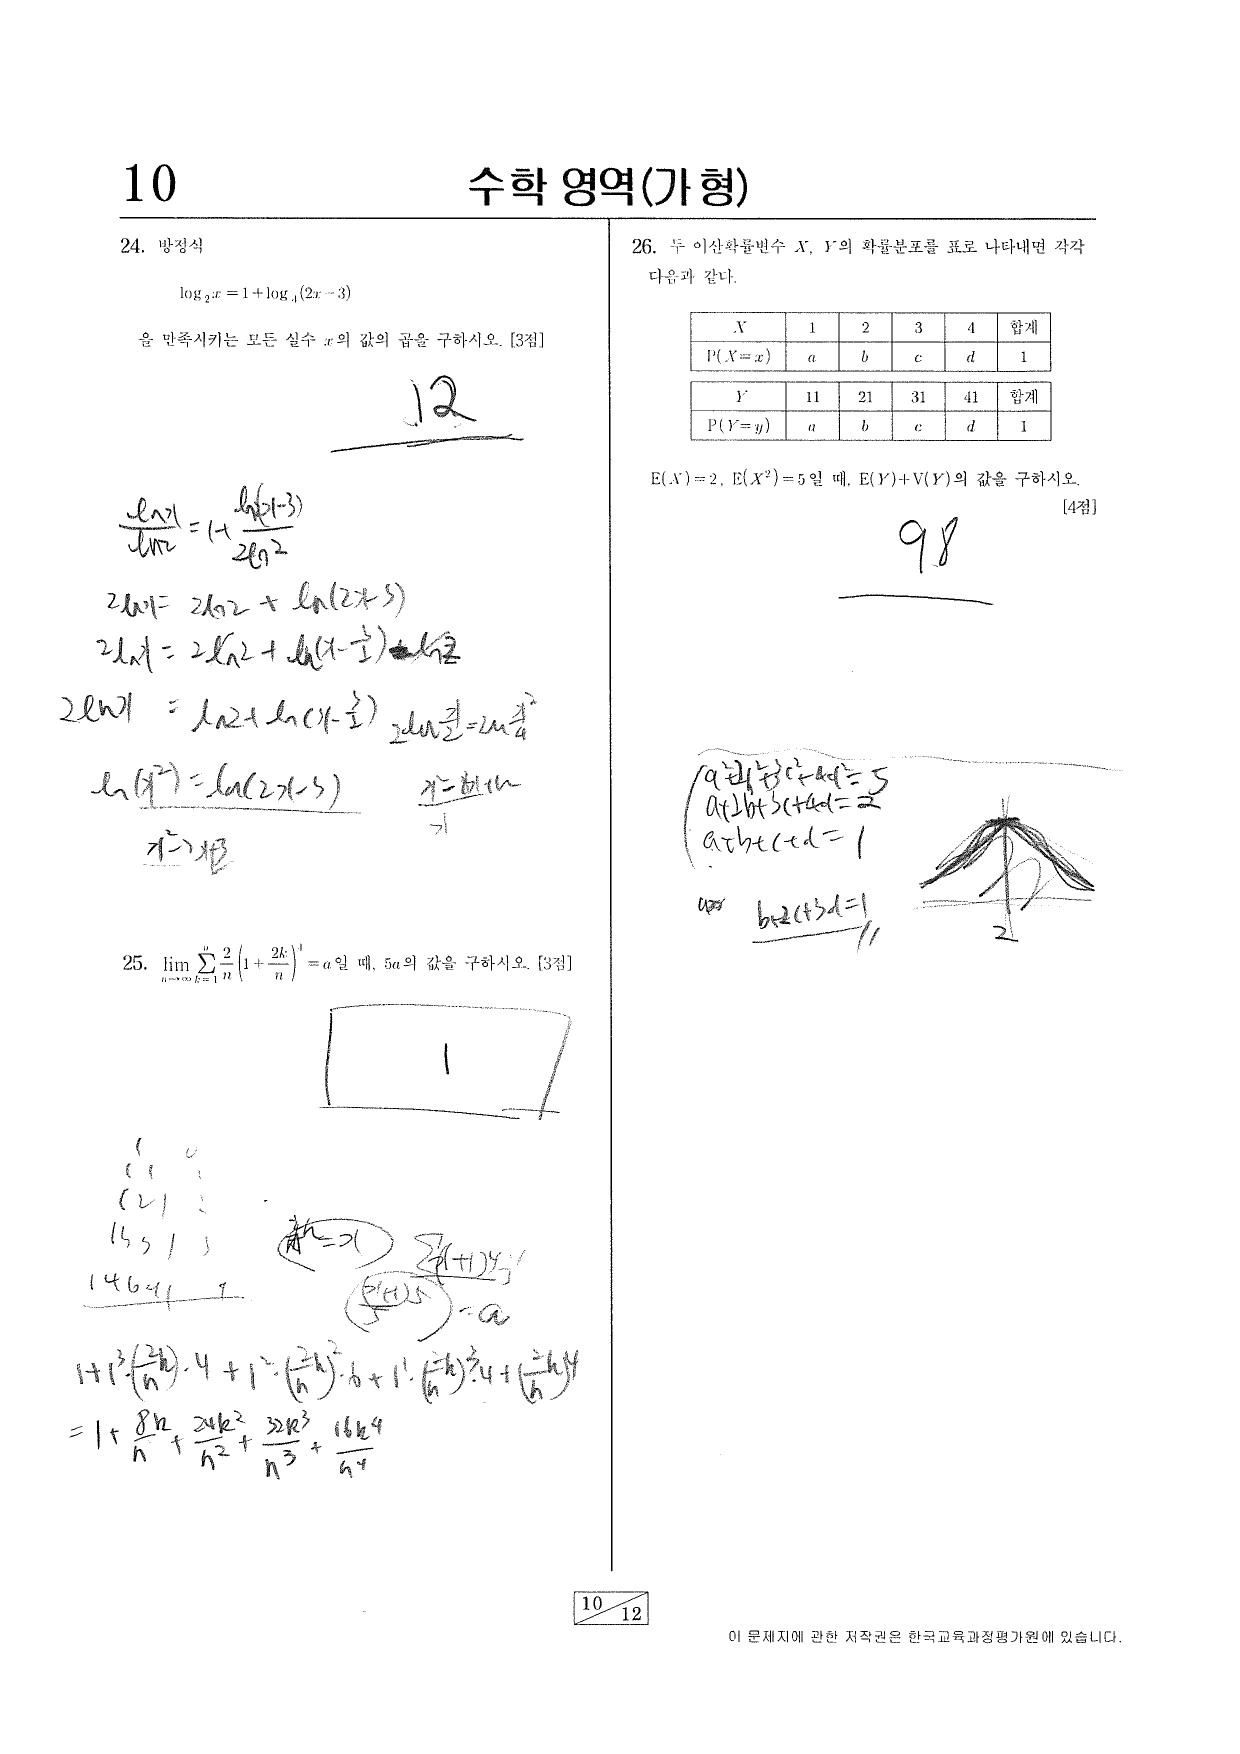 10
수학 영역(가형)
24. 방정식
log₂x = 1 + log₄(2x - 3)
을 만족시키는 모든 실수 x의 값의 곱을 구하시오. [3점]
12
2lnx = 2ln2 + ln(2x-3)
ln(x²) = ln(2x-3)
25. lim n→∞ Σ k=1 n 2/n (1 + 2k/n)⁴ = a일 때, 5a의 값을 구하시오. [3점]
1
1 4 6 4 1 4
= a
1+1³·(2k/n)·4 + 1²·(2k/n)²·6 + 1¹·(2k/n)³·4 + (2k/n)4
= 1 + 8k/n + 24k²/n² + 32k³/n³ + 16k⁴/n⁴
26. 두 이산확률변수 X, Y의 확률분포를 표로 나타내면 각각
다음과 같다.
X 1 2 3 4 합계
P(X=x) a b c d 1
Y 11 21 31 41 합계
P(Y=y) a b c d 1
E(X)=2, E(X²)=5일 때, E(Y)+V(Y)의 값을 구하시오.
[4점]
98
a+2b+3c+4d=2
a+b+c+d=1
b+2c+3d=1
2
10 / 12
이 문제지에 관한 저작권은 한국교육과정평가원에 있습니다.